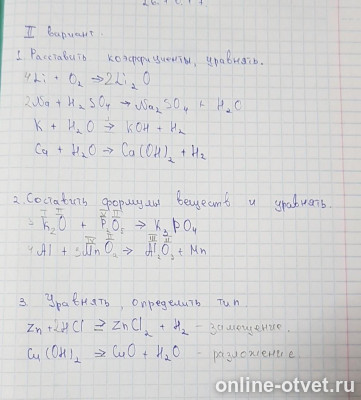 II вариант.
1. Расставить коэффициенты, уравнять.
4Li + O2 → 2Li2O
2Na + H2SO4 → Na2SO4 + H2O
K + H2O → KOH + H2
Ca + H2O → Ca(OH)2 + H2
2. Составить формулы веществ и уравнять.
K2O + P2O5 → K3PO4
4Al + 3MnO2 → Al2O3 + Mn
3. Уравнять, определить тип.
Zn + 2HCl = ZnCl2 + H2 - замещение.
Cu(OH)2 → CuO + H2O - разложение.
online-otvet.ru